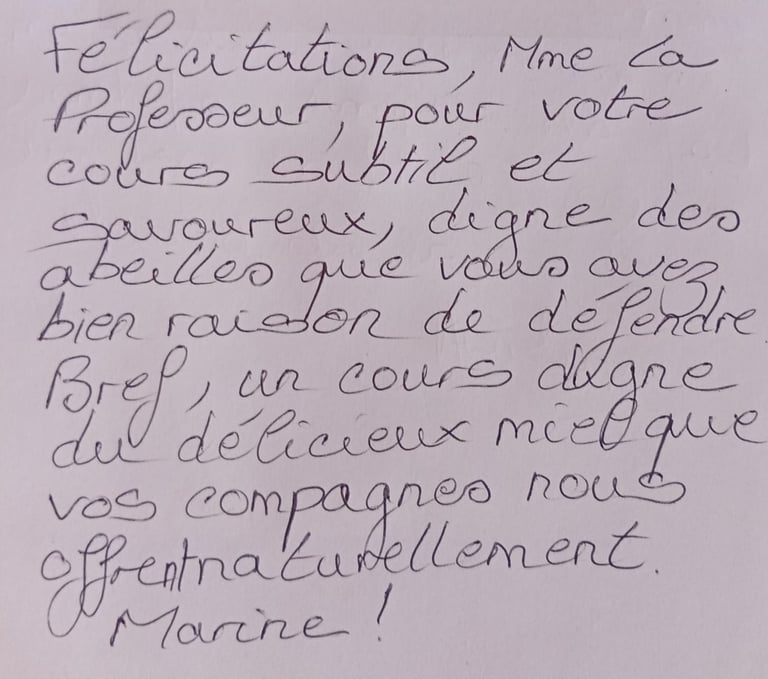 Félicitations, Mme la
Professeur, pour votre
cours subtil et
savoureux, digne des
abeilles que vous avez
bien raison de défendre
Bref, un cours digne
du délicieux miel que
vos compagnes nous
offrent naturellement.
Marine !